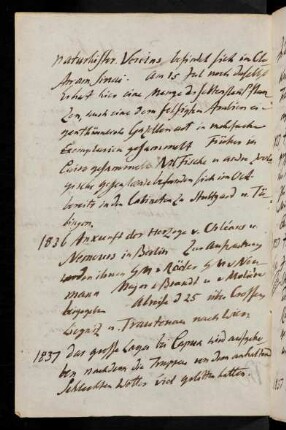 naturhistor. Vereins befindet sich im Cl
Am 15 Jul noch daselbst
hier eine Menge der seltensten Pflan
zen, auch eine dem felsigten Arabien ei
genthümliche in mehrfachen
Exemplarien gesammelt Früher in
Cairo gesammelte Nilfische u andre
befanden sich im Okt
bereits in den Cabinetten zu Stuttgard u. Tü
bingen.
1836 Ankunft der Herzoge v. Orleans u.
Nemours in Berlin Zur Aufwartung
werden ihnen GM v Röder GM v Neu
mann Major v Brandt u v Molière
beygegeben Abreise d 25 über Crossen,
Liegnitz u. Trautenau nach Wien
1837 das grosse Lager bei Capua wird aufgeho
ben nachdem die Truppen von dem anhaltend
schlechten Wetter viel gelitten hatten.